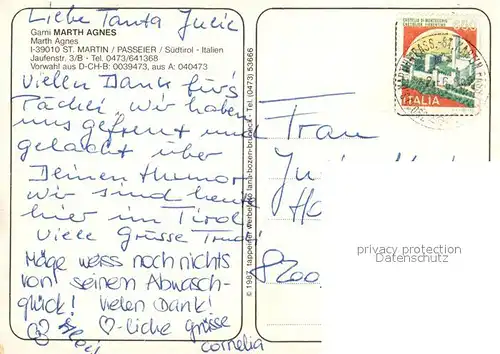 Liebe Tanta Julie
Garni MARTH AGNES
Marth Agnes
I-39010 ST. MARTIN / PASSEIER / Südtirol - Italien
Jaufenstr. 3/B - Tel. 0473/641368
Vorwahl aus D-CH-B: 0039473, aus A: 040473
Vielen Dank für's
Päckei, wir haben
uns gefreut und
gelacht über
Deinen Humor
wir sind heute
hier im Tirol
Viele Grüsse Trudi
Möge weiss noch nichts
von seinem Abwasch-
glück! Vielen Dank!
♡-liche Grüsse
Cornelia
© 1987 tappeiner werbefoto lana-bozen-bruneck - Tel. (0473) 53666
CASTELLO DI MONTECCHIO
CASTIGLION FIORENTINO
ITALIA
Frau
Ho
8200
privacy protection
Datenschutz